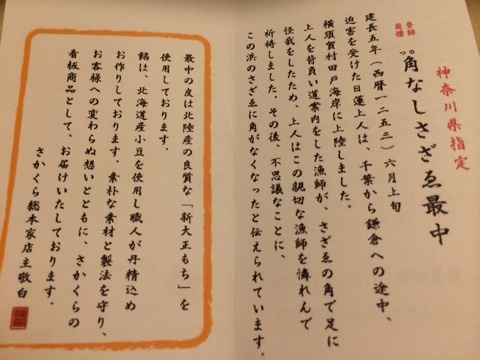 神奈川県指定
登録
商標
角なしさざゑ最中
つの
建長五年(西暦一二五三)六月上旬
迫害を受けた日蓮上人は、千葉から鎌倉への途中、
横須賀村田戸海岸に上陸しました。
上人を背負い道案内をした漁師が、さざゑの角で足に
怪我をしたため、上人はこの親切な漁師を憐れんで
祈祷しました。その後、不思議なことに、
この浜のさざゑに角がなくなったと伝えられています。
最中の皮は北陸産の良質な「新大正もち」を
使用しております。
餡は、北海道産小豆を使用し職人が丹精込め
お作りしております。素朴な素材と製法を守り、
お客様への変わらぬ想いとともに、さかくらの
看板商品として、お届けいたしております。
さかくら総本家店主敬白